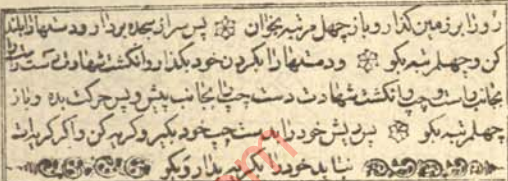 رو را بر زمین گذار و باز چهل مرتبه بخوان پس سر از سجده بردار و دستها را بلند
کن و چهل مرتبه بگو و دستها را بگردن خود بگذار و انگشت شهادت دست راست را
بجانب راست و چپ و انگشت شهادت دست چپ را بجانب پیش و پس حرکت بده و باز
چهل مرتبه بگو پس ریش خود را بدست چپ خود بگیر و گریه کن و اگر گریه ات
نیاید خود را بگریه بدار و بگو